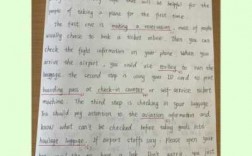 that will be helpful for the
people of taking a plane for the first time.
The first one is making a reservation, most of people
usually choose to book a ticket online. Then you can
check the flight information on your phone. When you
arrive at the airport, you could
luggage. The second step is using your ID card to print
boarding pass at check-in counter or self-service ticket
machine. The third step is checking in your luggage.
You should pay attention to the information and
know what can't be checked before taking goods into
luggage. If airport staffs any please open your